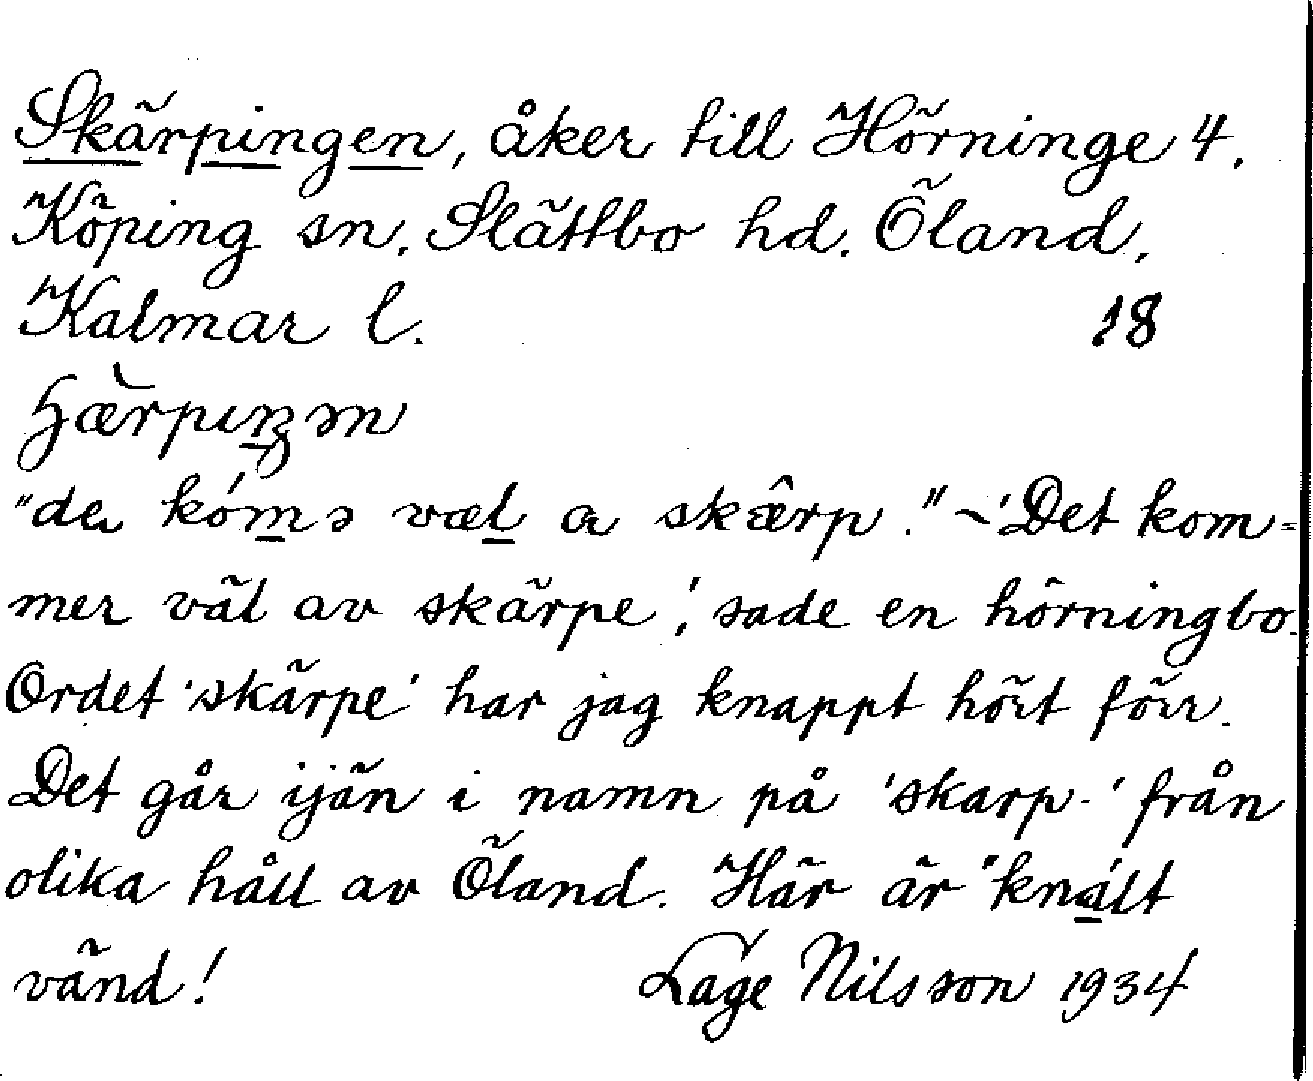 Skärpingen, åker till Hörninge 4.
Köping sn. Slättbo hd. Öland.
Kalmar l. 18
"de kóms væl a skærp." ~ 'Det kom=
mer väl av skärpe', sade en hörningbo.
Ordet 'skärpe' har jag knappt hört förr.
Det går ijän i namn på 'skarp-' från
olika håll av Öland. Här är "knált
vänd!
Lage Nilsson 1934